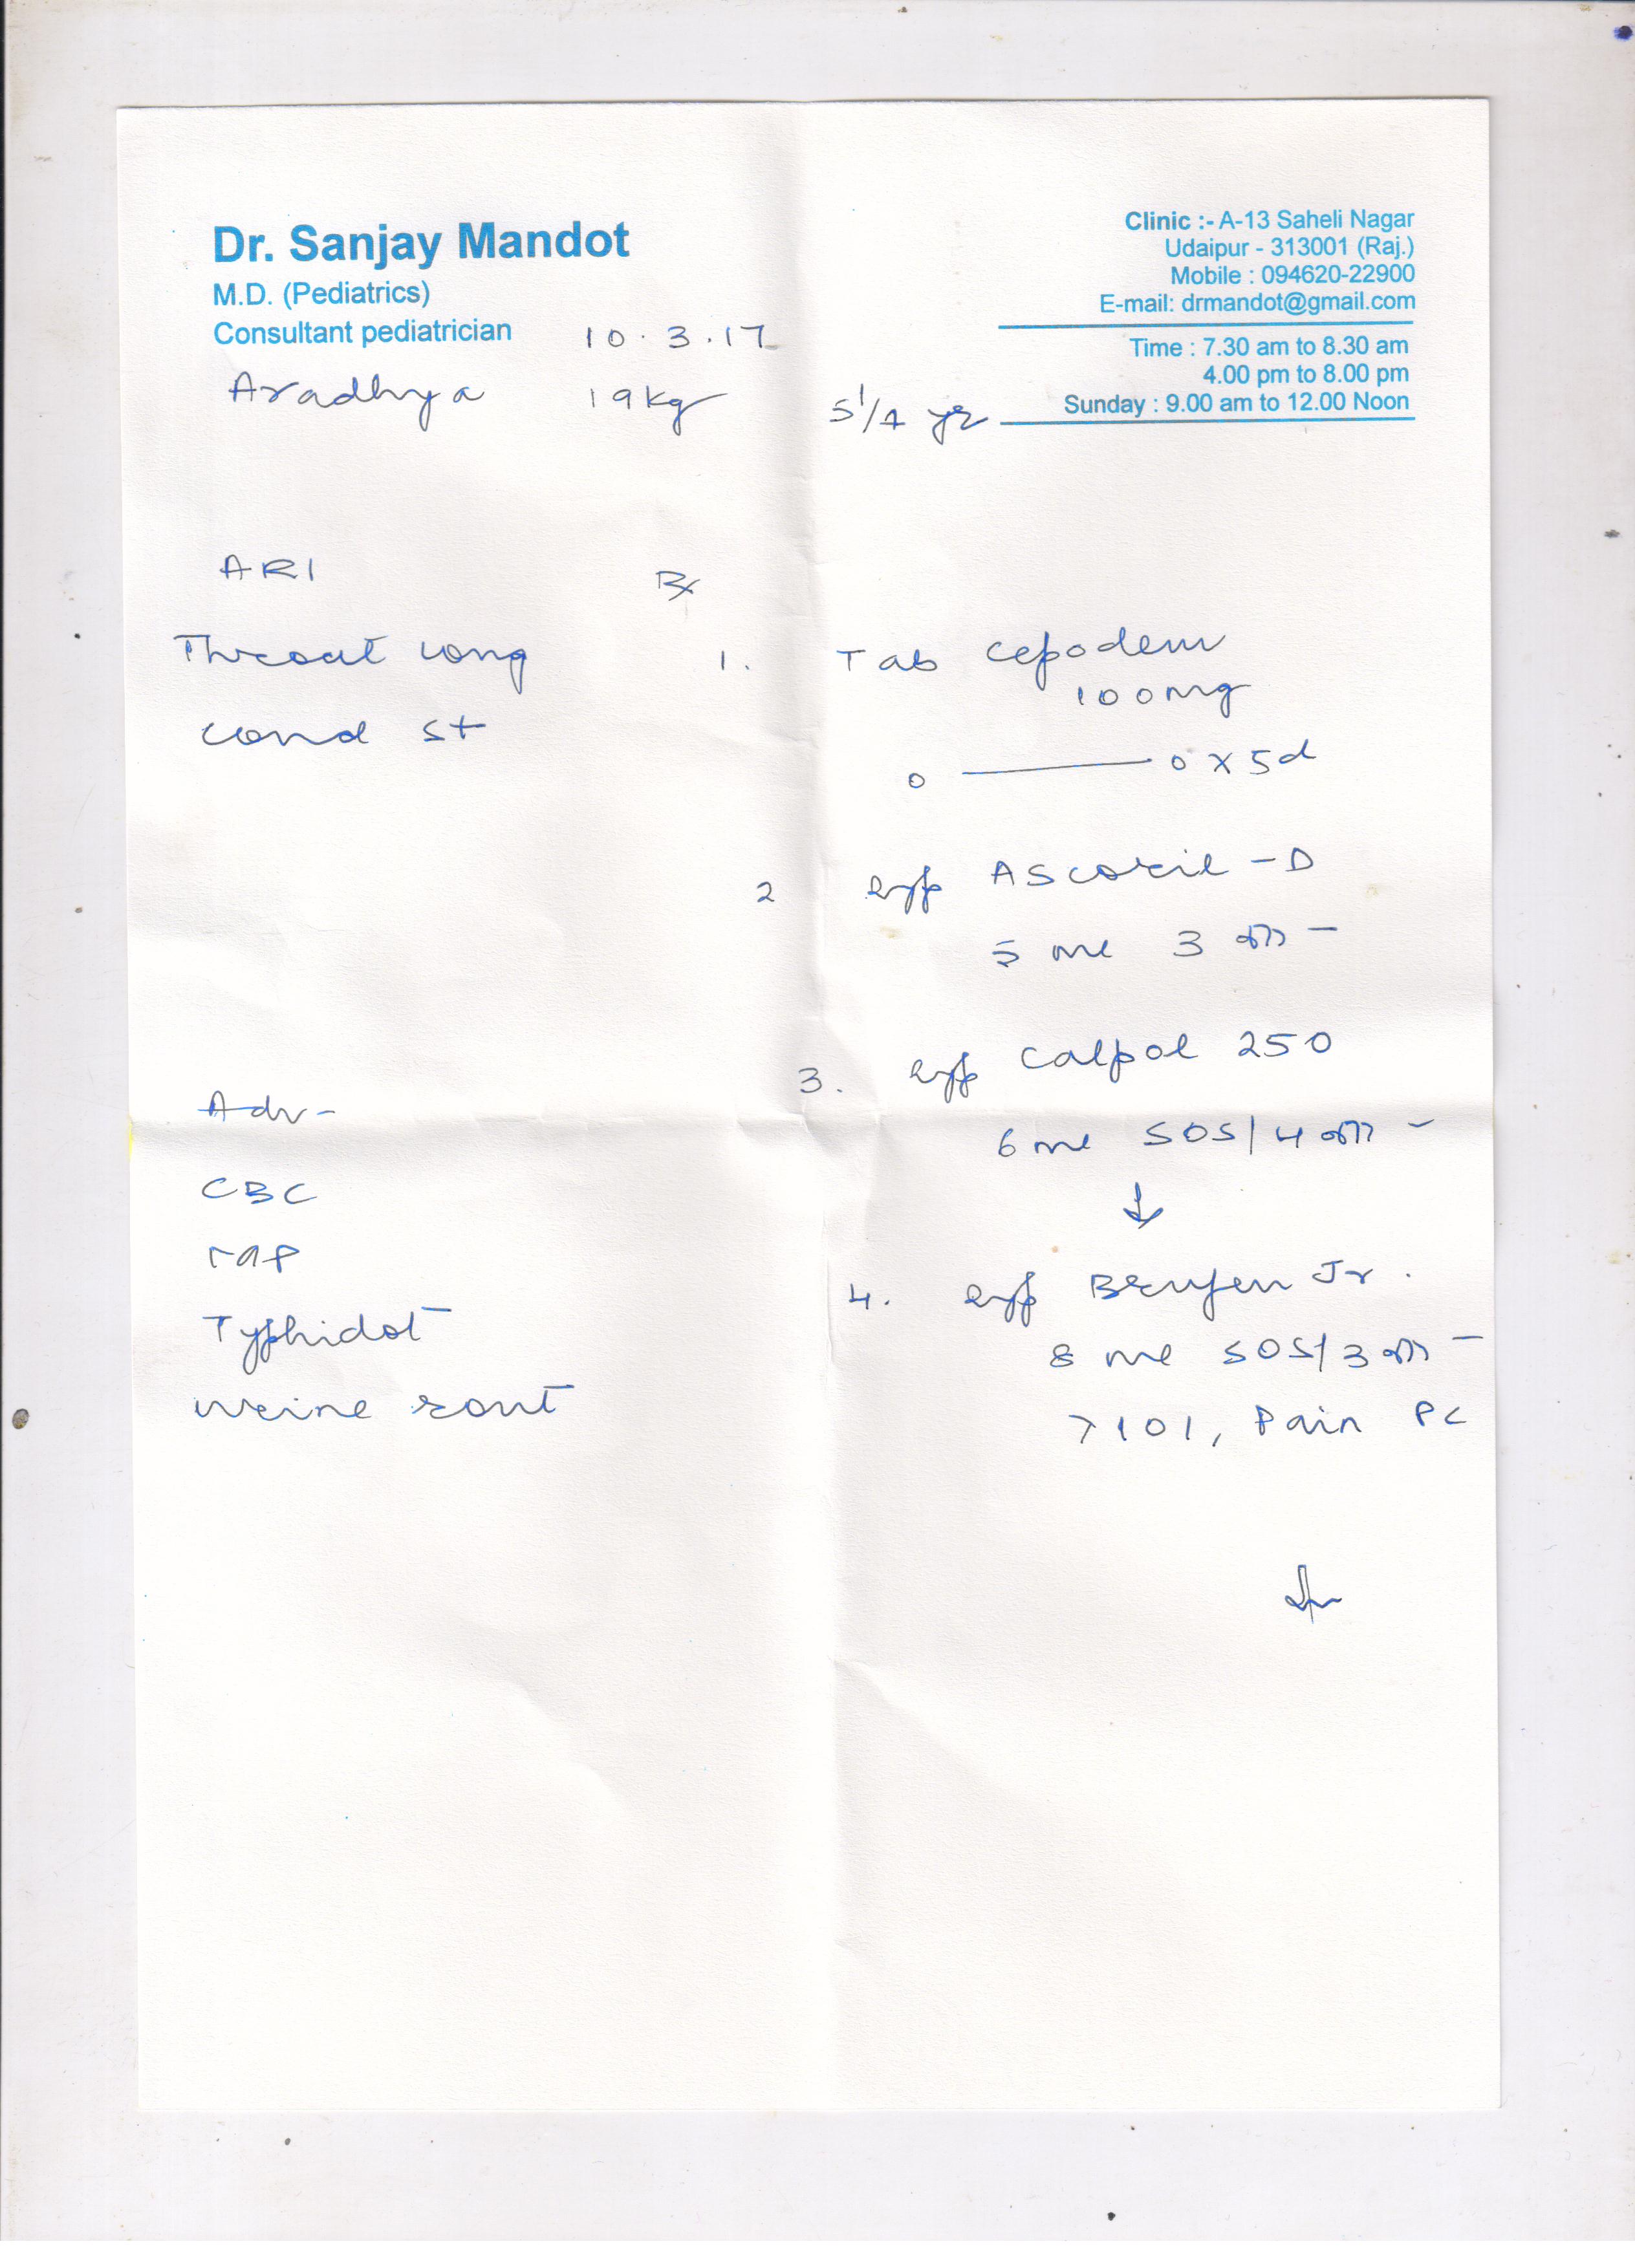 Dr. Sanjay Mandot
M.D. (Pediatrics)
Consultant pediatrician
10.3.17
Clinic :- A-13 Saheli Nagar
Udaipur - 313001 (Raj.)
Mobile : 094620-22900
E-mail: drmandot@gmail.com
Time : 7.30 am to 8.30 am
4.00 pm to 8.00 pm
Sunday : 9.00 am to 12.00 Noon
Aradhya 19kg 5 1/4 yr
ARI
Throat cong
cond st
Adv-
CBC
Typhidot
urine rout
Rx
1. Tab Cepodem
100mg
0 — 0 x 5d
2 Syp Ascoril - D
5 ml 3
3. Syp Calpol 250
6 ml SOS/4
↓
4. Syp Brufen Jr.
8 ml SOS/3
>101, Pain PC